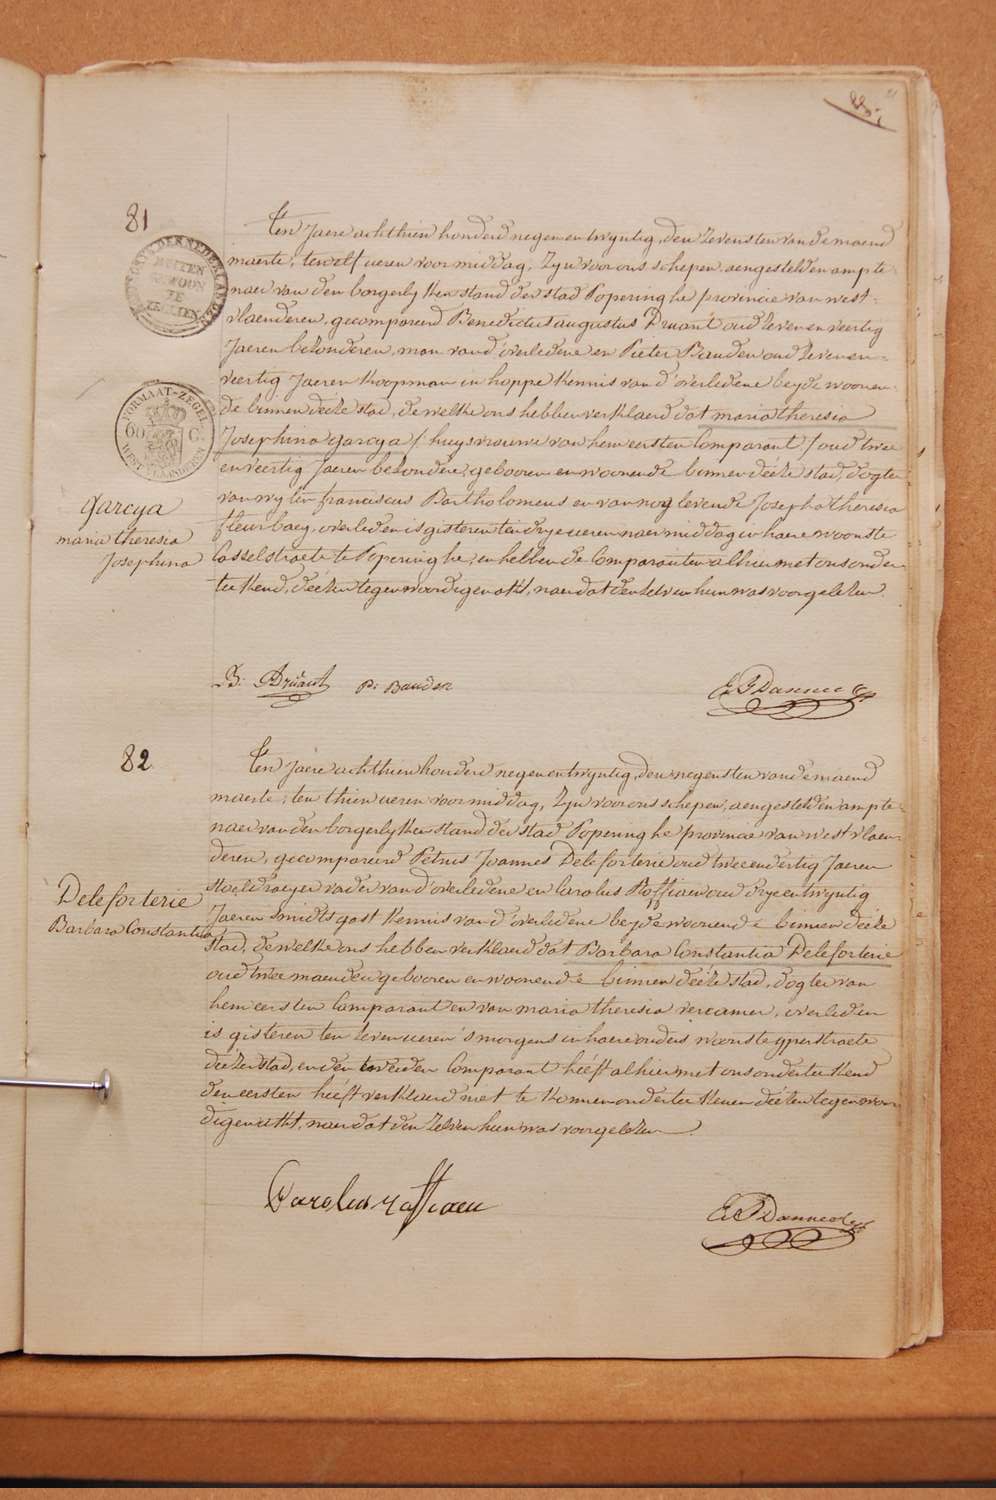 81
Ten Jaere achthien honderd negen en twyntig, den Zevensten van de maend
maerte, ten elf ueren voor middag, Zyn voor ons schepen, aengestelden ampte-
naer van den borgerlyken stand der stad Poperinghe provincie van west-
vlaenderen, gecompareerd Benedictus augustus Druant oud Zeven en veertig
Jaeren bezonderen, man van d'overledene en Pieter Bauden oud Zeven en
veertig Jaeren Koopman in hoppe Kennis van d'overledene beyde woonen-
de binnen deeze stad, de welke ons hebben verklaerd dat maria theresia
Josephina garcya / huysvrouwe van hem eersten Comparant / oud twee
en veertig Jaeren bezondere, gebooren en woonende binnen deéze stad, dogter
van wylen franciscus Bartholomeus en van nog levende Josepha theresia
fleurbaey, overleden is gisteren ten drye ueren naer middag in haere woonste
Casselstraete te Poperinghe, en hebben de Comparanten alhier met ons onder-
teekend, deézen tegenwoordigen akt, naer dat den zelven hun was voorgelezen.
FORMAAT-ZEGEL
60 C.
WEST VLAANDEREN
garcya
maria theresia
Josephina
B. Drüant P. Bauden
82
Ten Jaere achthien honderd negen en twyntig, den negensten van de maend
maerte, ten thien ueren voor middag, Zyn voor ons schepen, aengestelden ampte-
naer van den borgerlyken stand der stad Poperinghe provincie van west vlaen-
deren, gecompareerd Petrus Joannes Deleforterie oud twee en dertig Jaeren
stoeldraeyer vader van d'overledene en Carolus Roffiaen oud drye en twyntig
Jaeren smidts gast Kennis van d'overledene beyde woonende binnen deéze
stad, de welke ons hebben verklaerd dat Barbara Constantia Deleforterie
oud twee maenden gebooren en woonende binnen deéze stad, dogter van
hem eersten Comparant en van maria theresia vercamer, overleden
is gisteren ten Zeven ueren 's morgens in haere ouders woonste yperstraete
deézer stad, en den tweeden Comparant heéft alhier met ons onderteekend
den eersten heéft verklaerd niet te Konnen onderteekenen deézen tegenwoor-
digen akt, naer dat den zelven hun was voorgelezen.
Deleforterie
Barbara Constantia
Carolus Roffiaen